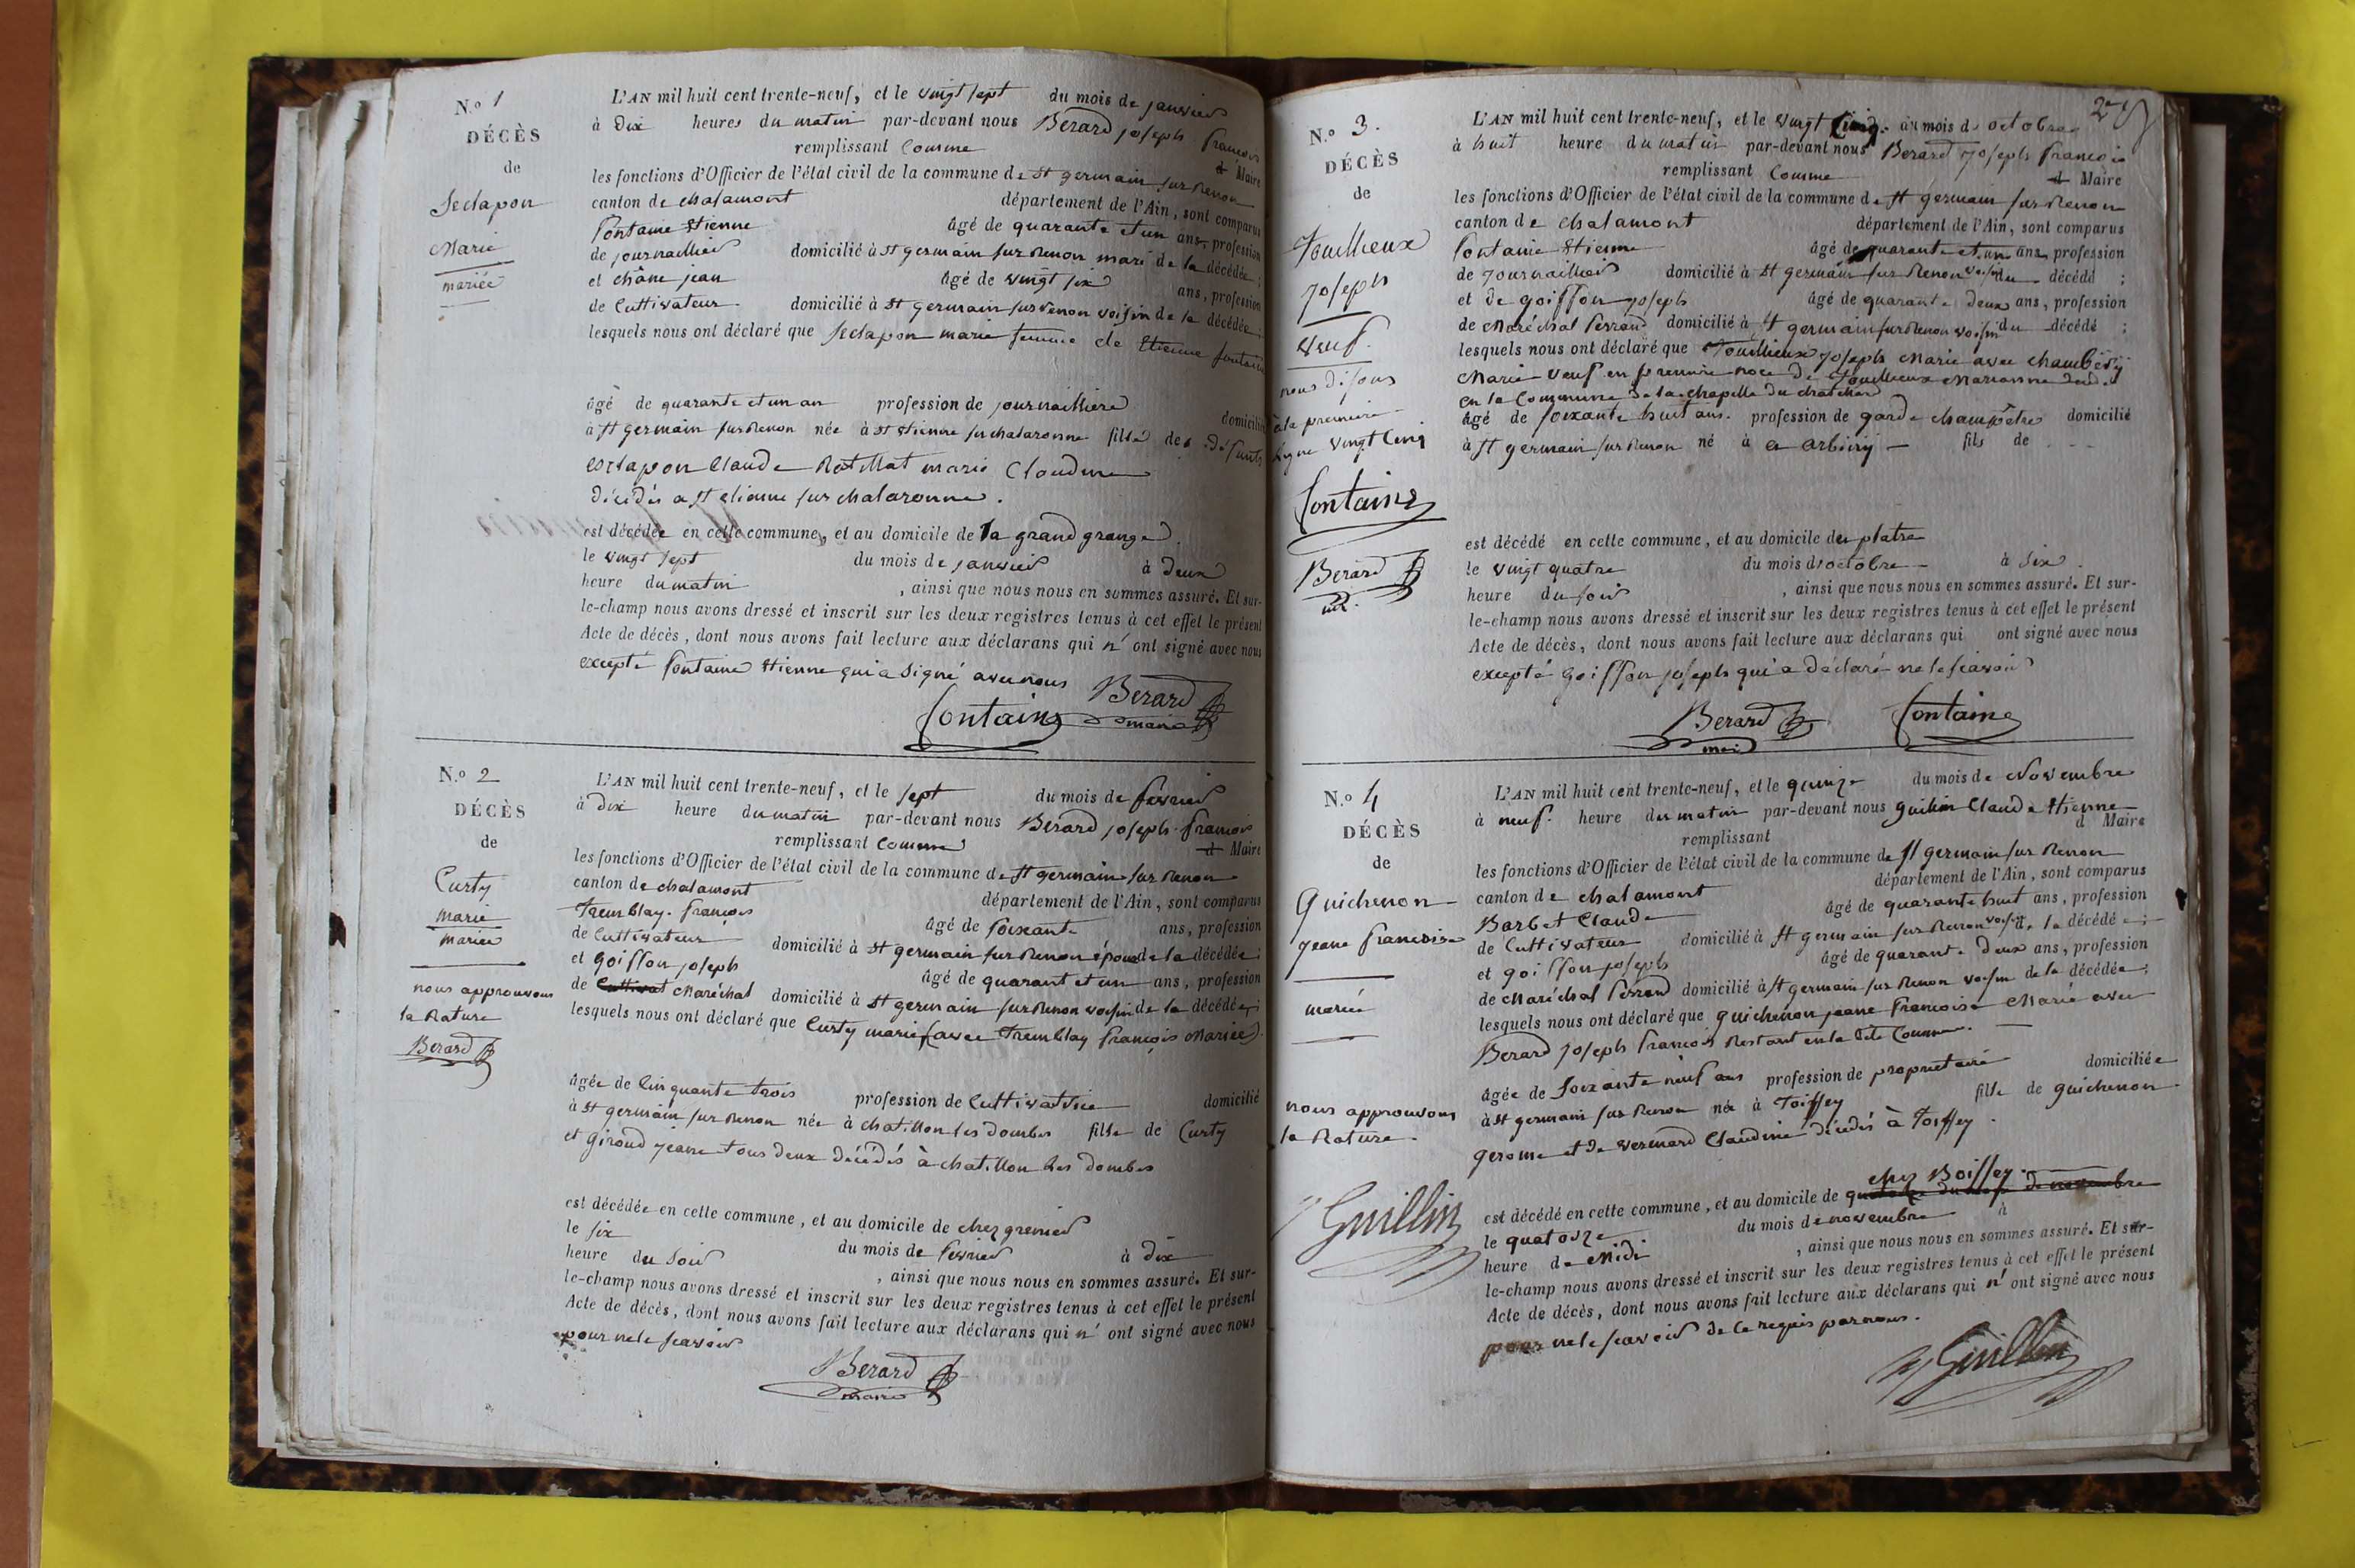 N.o 1
DÉCÈS
de
Seclapon
Marie
mariée
L'AN mil huit cent trente-neuf, et le vingt sept du mois de janvier
à Dix heures du matin par-devant nous Berard joseph francois
remplissant Comme d Maire
les fonctions d'Officier de l'état civil de la commune de St germain sur Renon
canton de chalamont département de l'Ain, sont comparus
fontaine Etienne âgé de quarante et un ans, profession
de journaillier domicilié à St germain sur Renon mari de la décédée ;
et châne jean âgé de vingt six ans, profession
de Cultivateur domicilié à St germain sur renon voisin de la décédée ;
lesquels nous ont déclaré que Seclapon marie femme de Etienne fontaine
âgé de quarante et un an profession de journaillière domicilié
à St germain sur Renon née à St Etienne sur chalaronne fille des Défunts
Esclapon Claude Ratillat marie Claudine
décédés a St etienne sur chalaronne.
est décédée en cette commune, et au domicile de la grand grange
le vingt sept du mois de janvier à deux
heure du matin , ainsi que nous nous en sommes assuré. Et sur-
le-champ nous avons dressé et inscrit sur les deux registres tenus à cet effet le présent
Acte de décès, dont nous avons fait lecture aux déclarans qui n' ont signé avec nous
excepté fontaine Etienne qui a signé avec nous
Berard
maire
fontaine
N.o 2
DÉCÈS
de
Curty
marie
mariée
nous approuvons
la Rature
Berard
L'AN mil huit cent trente-neuf, et le sept du mois de fevrier
à dix heure du matin par-devant nous Berard joseph francois
remplissant Comme d Maire
les fonctions d'Officier de l'état civil de la commune de St germain sur Renon
canton de chalamont département de l'Ain, sont comparus
Tremblay francois âgé de soixante ans, profession
de Cultivateur domicilié à St germain sur Renon époux de la décédée ;
et goiffon joseph âgé de quarant et un ans, profession
de Cultivat Maréchal domicilié à St germain sur Renon voisin de la décédée ;
lesquels nous ont déclaré que Curty marie (avec Tremblay françois Mariée).
âgée de Cinquante trois profession de Cultivatrice domicilié
à St germain sur Renon née à chatillon les dombes fille de Curty
et Giroud jeane tous deux décédés à chatillon les dombes
est décédée en cette commune, et au domicile de chez grenier
le six du mois de fevrier à dix
heure du Soir , ainsi que nous nous en sommes assuré. Et sur-
le-champ nous avons dressé et inscrit sur les deux registres tenus à cet effet le présent
Acte de décès, dont nous avons fait lecture aux déclarans qui n' ont signé avec nous
pour ne le scavoir
Berard
maire
N.o 3.
DÉCÈS
de
Touillieux
joseph
veuf.
nous disons
à la premiere
ligne vingt Cinq
fontaine
Berard
L'AN mil huit cent trente-neuf, et le vingt Cinq du mois d octobre
à huit heure du matin par-devant nous Berard joseph francois
remplissant Comme d Maire
les fonctions d'Officier de l'état civil de la commune de St germain sur Renon
canton de chalamont département de l'Ain, sont comparus
fontaine Etienne âgé de quarante et un ans, profession
de journaillier domicilié à St germain sur Renon voisin du décédé ;
et de goiffon joseph âgé de quarante deux ans, profession
de Maréchal ferrand domicilié à St germain sur Renon voisin du décédé ;
lesquels nous ont déclaré que Touillieux joseph Marié avec chambéry
Marie veuf en premiere noce de Touillieux Marianne
en la Commune de la chapelle du chatelard
âgé de soixante huit ans. profession de garde champêtre domicilié
à St germain sur Renon né à a arbigny fils de
est décédé en cette commune, et au domicile des platre
le vingt quatre du mois d'octobre à six
heure du soir , ainsi que nous nous en sommes assuré. Et sur-
le-champ nous avons dressé et inscrit sur les deux registres tenus à cet effet le présent
Acte de décès, dont nous avons fait lecture aux déclarans qui ont signé avec nous
excepté goiffon joseph qui a déclaré ne le scavoir
Berard
fontaine
N.o 4
DÉCÈS
de
Guichenon
jeane francoise
mariée
nous approuvons
la Rature.
Guillin
L'AN mil huit cent trente-neuf, et le quinze du mois de Novembre
à neuf heure du matin par-devant nous guillin Claude Etienne
remplissant d Maire
les fonctions d'Officier de l'état civil de la commune de St germain sur Renon
canton de chalamont département de l'Ain, sont comparus
Barbet Claude âgé de quarante huit ans, profession
de Cultivateur domicilié à St germain sur Renon voisin de la décédée ;
et goiffon joseph âgé de quarante deux ans, profession
de Maréchal ferrand domicilié à St germain sur Renon voisin de la décédée ;
lesquels nous ont déclaré que guichenon jeane francoise Marié avec
Berard joseph francois Restant en la dite Commune.
âgée de Soixante neuf ans profession de propriétaire domiciliée
à St germain sur Renon née à Toissey fille de guichenon
gerome et de vermard Claudine décédés à Toissey.
chez Boissey.
est décédé en cette commune, et au domicile de
le quatorze du mois de novembre à
heure de Midi , ainsi que nous nous en sommes assuré. Et sur-
le-champ nous avons dressé et inscrit sur les deux registres tenus à cet effet le présent
Acte de décès, dont nous avons fait lecture aux déclarans qui n' ont signé avec nous
pour ne le scavoir de ce requis par nous.
Guillin